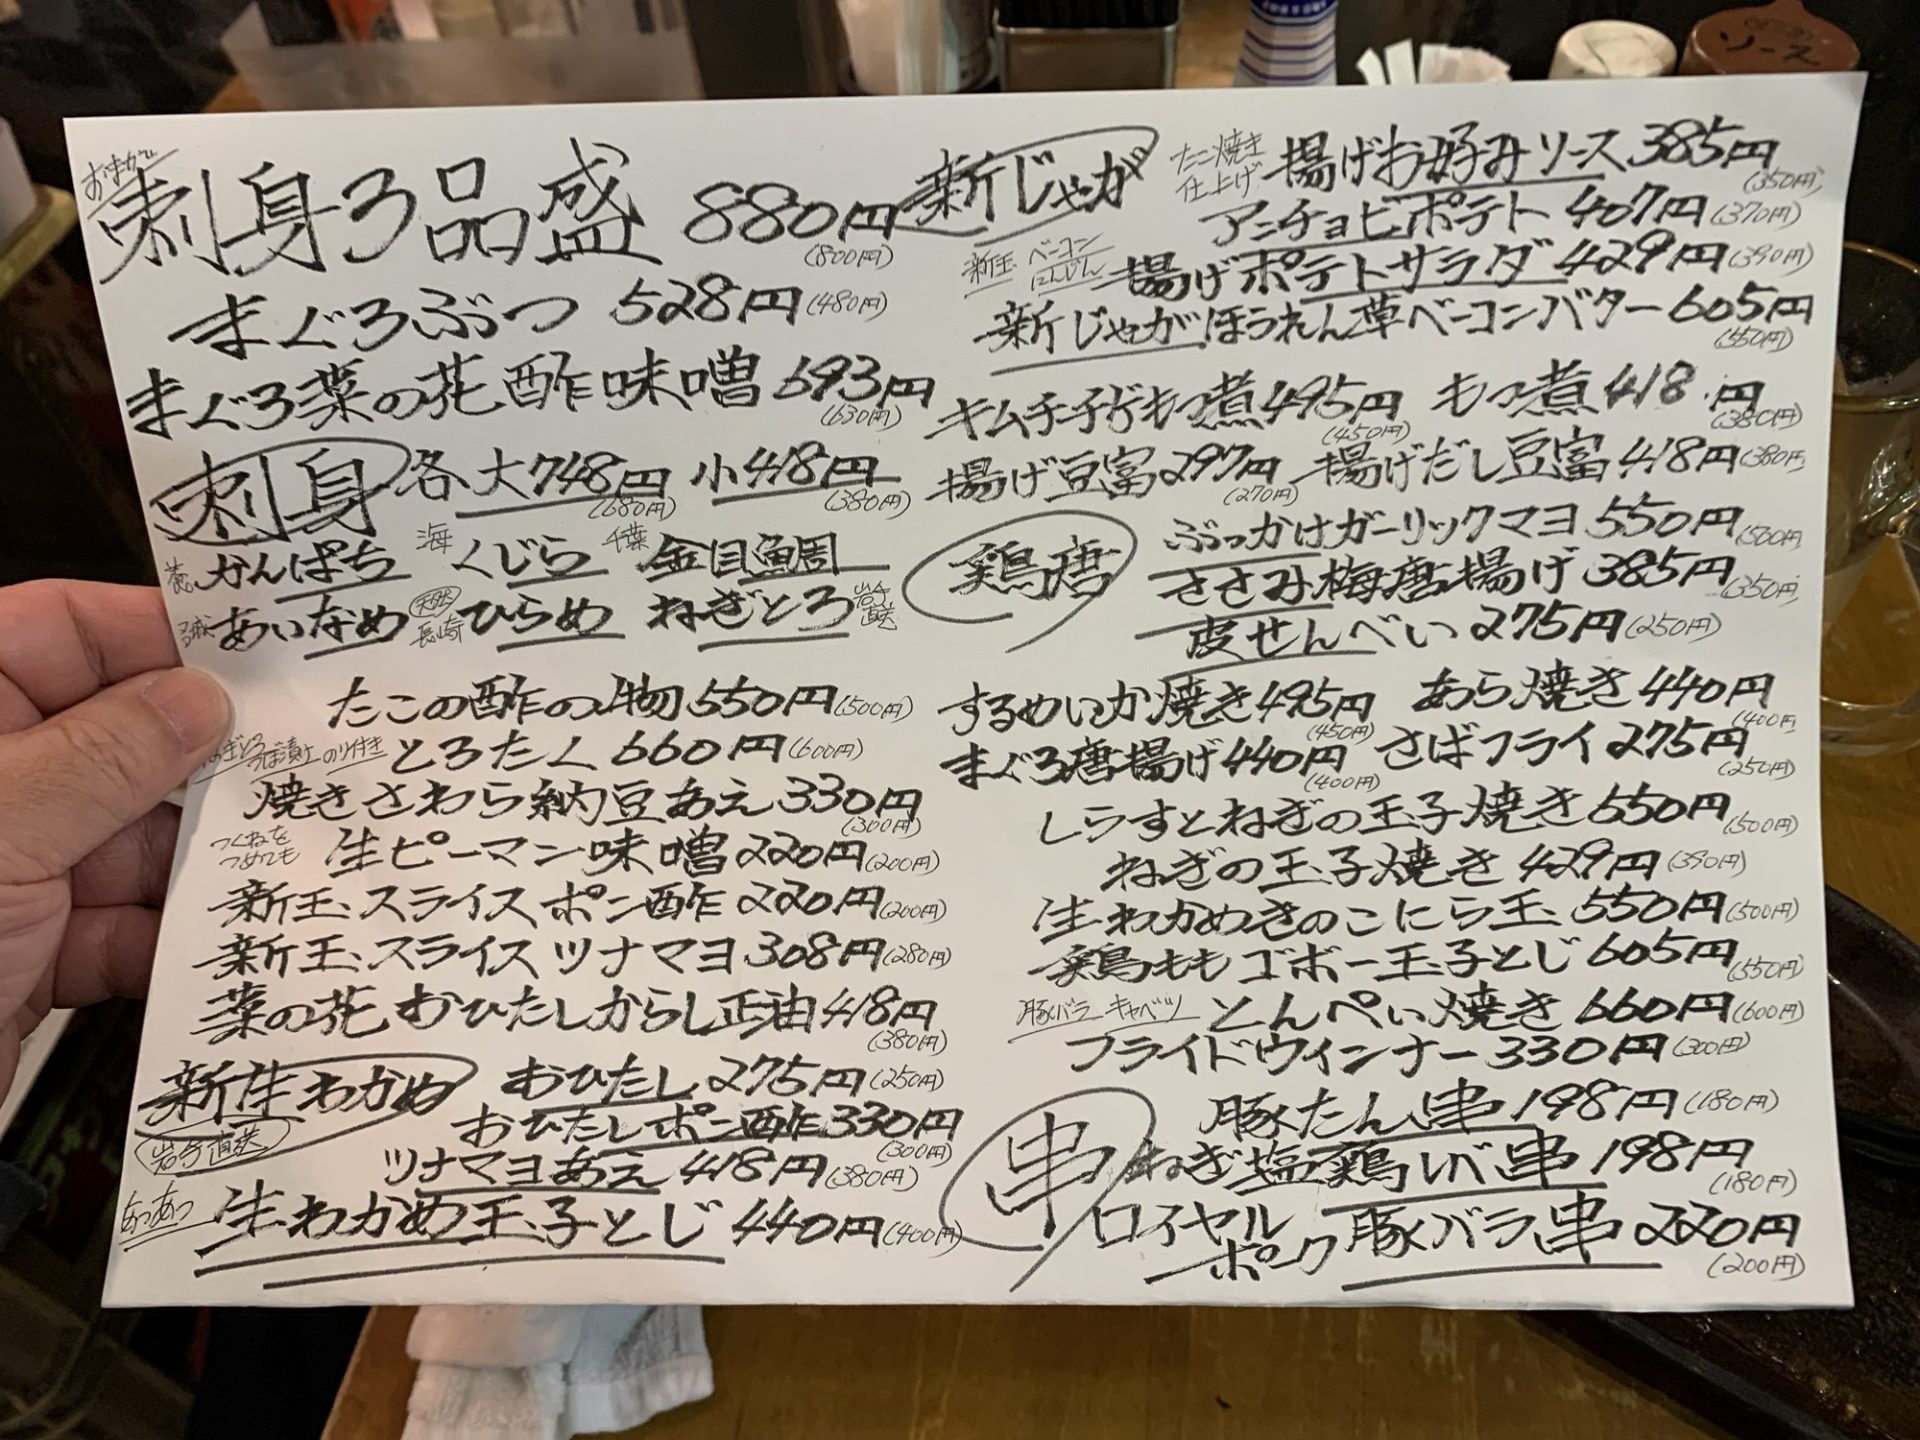 おまかせ
刺身3品盛 880円
(800円)
まぐろぶつ 528円(480円)
まぐろ菜の花酢味噌 693円
(630円)
刺身 各 大748円 小418円
(680円) (380円)
かんぱち 海 くじら 千葉 金目鯛
あいなめ 天然 長崎 ひらめ ねぎとろ 岩手直送
たこの酢の物 550円(500円)
のり付き とろたく 660円(600円)
焼きさわら納豆あえ 330円
(300円)
つくねをつめても 生ピーマン味噌 220円(200円)
新玉スライスポン酢 220円(200円)
新玉スライスツナマヨ 308円(280円)
菜の花おひたしからし正油 418円
(380円)
新生わかめ おひたし 275円(250円)
岩手直送 おひたしポン酢 330円
(300円)
ツナマヨあえ 418円(380円)
あつあつ 生わかめ玉子とじ 440円(400円)
新じゃが たこ焼き仕上げ 揚げお好みソース 385円
(350円)
アンチョビポテト 407円(370円)
新玉 ベーコン にんじん 揚げポテトサラダ 429円(390円)
新じゃがほうれん草ベーコンバター 605円
(550円)
キムチ子どもつ煮 495円 もつ煮 418円
(450円) (380円)
揚げ豆富 297円 揚げだし豆富 418円(380円)
(270円)
鶏唐 ぶっかけガーリックマヨ 550円(500円)
ささみ梅唐揚げ 385円(350円)
皮せんべい 275円(250円)
するめいか焼き 495円 あら焼き 440円
(450円) (400円)
まぐろ唐揚げ 440円 さばフライ 275円
(400円) (250円)
しらすとねぎの玉子焼き 550円(500円)
ねぎの玉子焼き 429円(390円)
生わかめきのこにら玉 550円(500円)
鶏ももゴボー玉子とじ 605円(550円)
豚バラ キャベツ とんぺい焼き 660円(600円)
フライドウィンナー 330円(300円)
串 豚たん串 198円(180円)
ねぎ塩鶏レバ串 198円
(180円)
ロイヤルポーク 豚バラ串 220円
(200円)
ソース